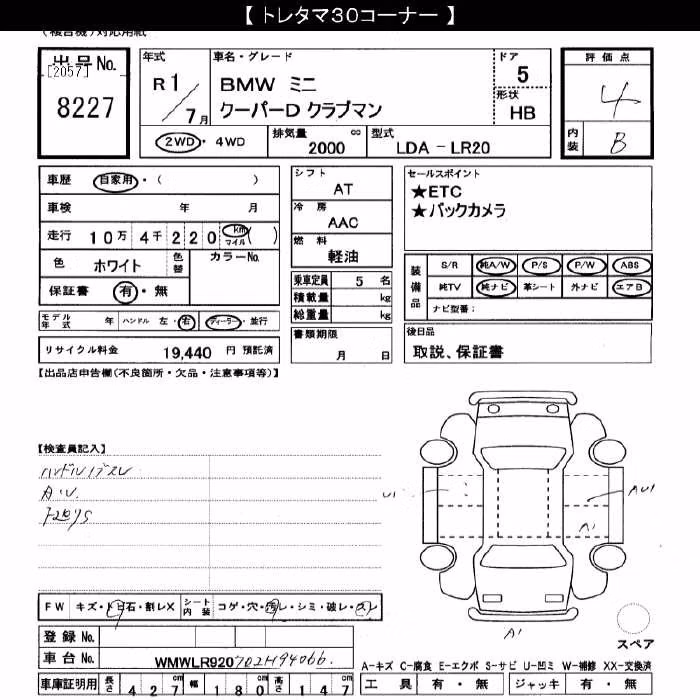 【 トレタマ30コーナー 】
(複合機)対応用紙
出品No.
[2057]
8227
年式
R 1/7月
車名・グレード
BMW ミニ
クーパーD クラブマン
ドア
5
形状
HB
2WD・4WD
排気量
2000 cc
型式
LDA - LR20
評価点
4
内装
B
車歴 自家用・( )
車検 年 月
走行 10万 4千 2 2 0 km マイル ( )
色 ホワイト 色替 カラーNo.
保証書 有・無
モデル年式 年 ハンドル 左・右 ディーラー・並行
リサイクル料金 19,440 円 預託済
シフト
AT
冷房
AAC
燃料
軽油
乗車定員 5 名
積載量 kg
総重量 kg
書類期限
月 日
セールスポイント
★ETC
★バックカメラ
装備品
S/R 純A/W P/S P/W ABS
純TV 純ナビ 革シート 外ナビ エアB
ナビ型番:
後日品
取説、保証書
【出品店申告欄(不良箇所・欠品・注意事項等)】
【検査員記入】
A・U
U1
AU1
A1
A1
FW キズ・トビ石・割レX シート内装 コゲ・穴・汚レ・シミ・破レ・スレ
登録 No.
車台 No. WMWLR920702H94066.
車庫証明用 長さ 427cm 幅 180cm 高さ 147cm
スペア
A-キズ C-腐食 E-エクボ S-サビ U-凹ミ W-補修 XX-交換済
工具 有・無 ジャッキ 有・無